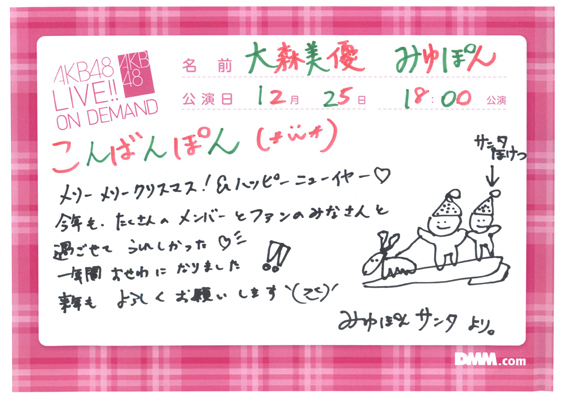 AKB48
LIVE!!
ON DEMAND
AKB
48
名前 大森美優 みゆぽん
公演日 12月 25日 18:00 公演
こんばんぽん (*ü*)
メリーメリークリスマス！&ハッピーニューイヤー♡
今年も、たくさんのメンバーとファンのみなさんと
過ごせて うれしかった♡
一年間 おせわになりました!!
来年も よろしくお願いします
サンタ
ぽけっ
みゆぽんサンタ より。
DMM.com